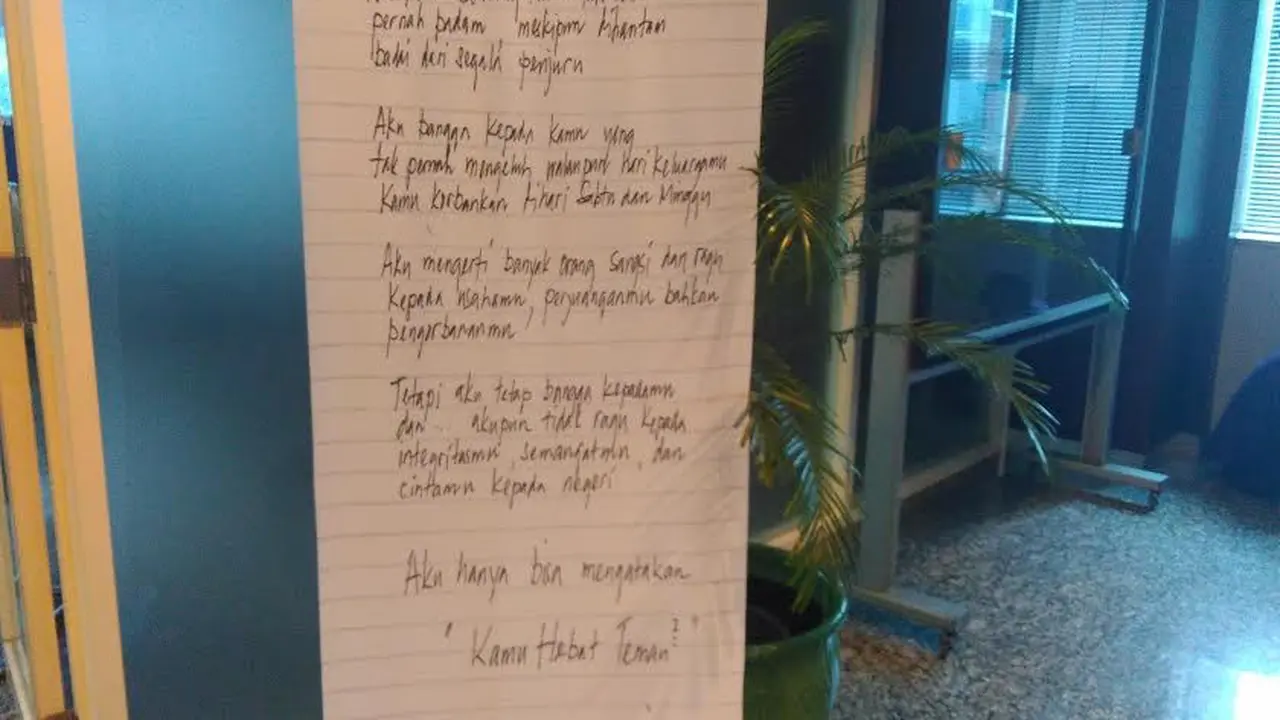 pernah padam meskipun dihantam
badai dari segala penjuru
Aku bangga kepada kamu yang
tak pernah mengeluh walaupun hari keluargamu
Kamu korbankan dihari Sabtu dan Minggu
Aku mengerti banyak orang sangsi dan ragu
kepada usahamu, perjuanganmu bahkan
pengorbananmu
Tetapi aku tetap bangga kepadamu
dan ... akupun tidak ragu kepada
integritasmu, semangatmu, dan
cintamu kepada negeri
Aku hanya bisa mengatakan
" Kamu Hebat Teman "